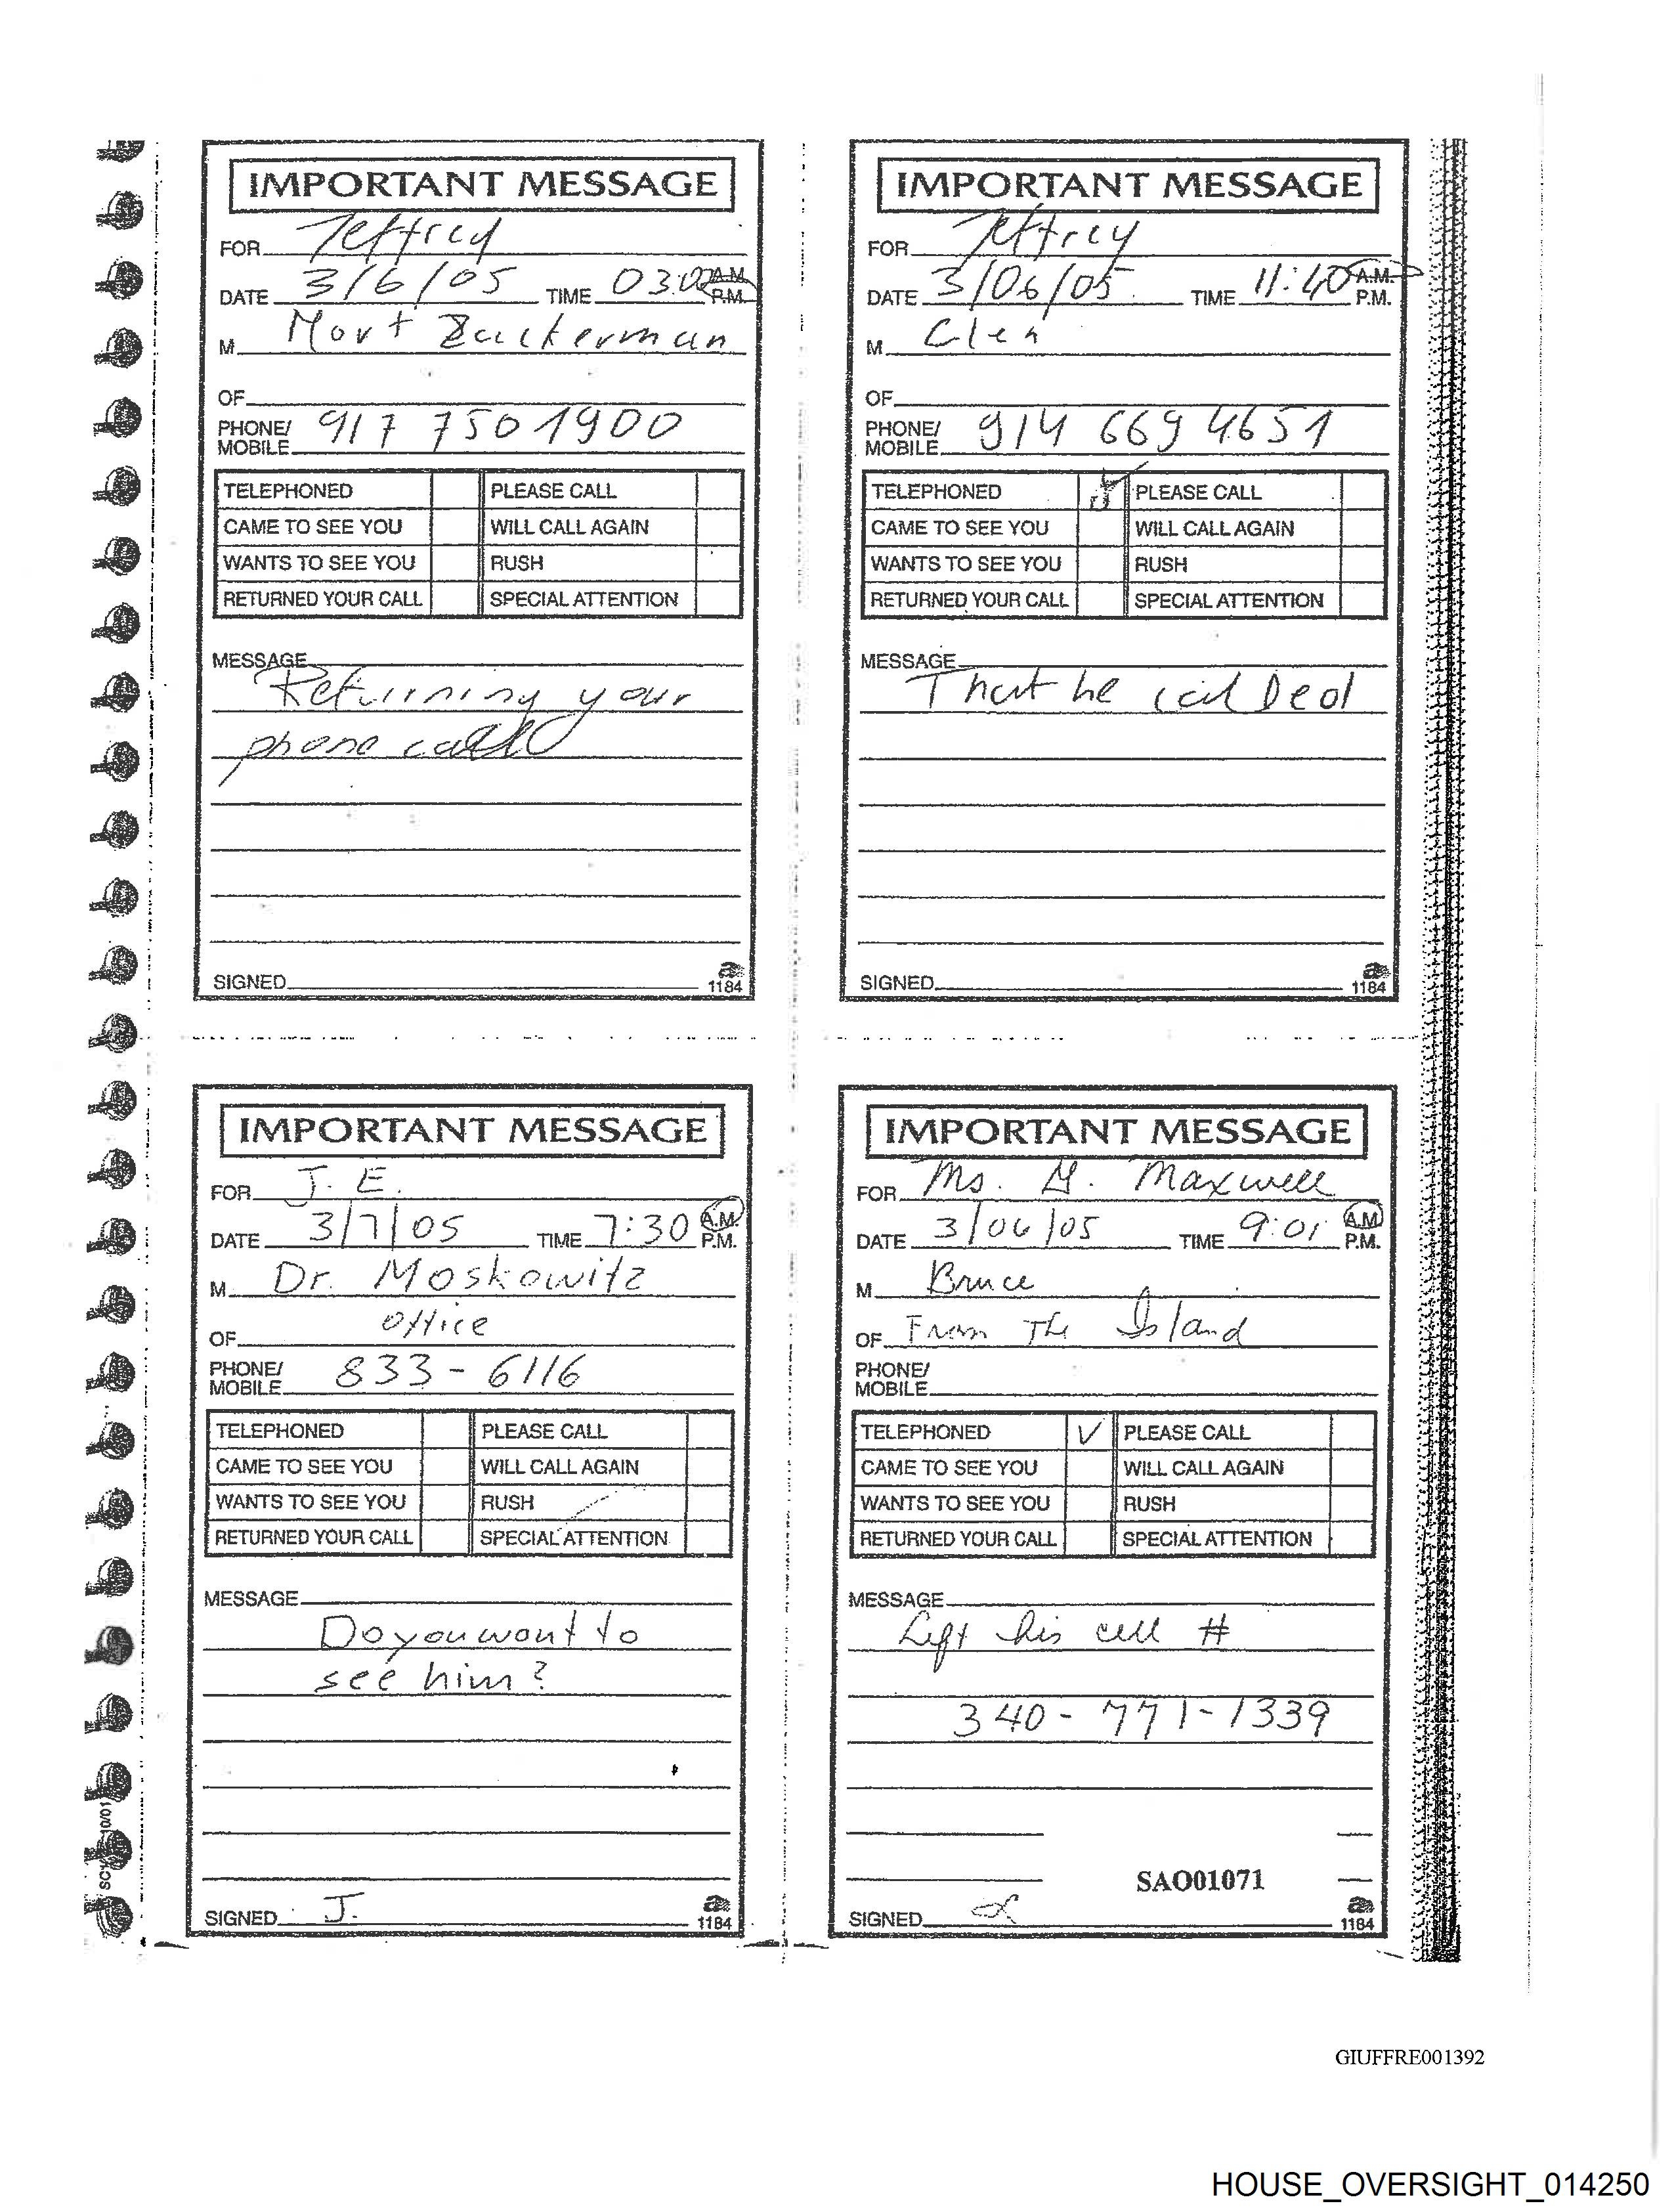 IMPORTANT MESSAGE
FOR Jeffrey
DATE 3/6/05 TIME 03:00 A.M. P.M.
M Mort Zuckerman
OF
PHONE/ MOBILE 917 750 1900
TELEPHONED PLEASE CALL
CAME TO SEE YOU WILL CALL AGAIN
WANTS TO SEE YOU RUSH
RETURNED YOUR CALL SPECIAL ATTENTION
MESSAGE
Returning your
phone call
SIGNED 1184
IMPORTANT MESSAGE
FOR Jeffrey
DATE 3/06/05 TIME 11:40 A.M. P.M.
M
OF
PHONE/ MOBILE 914 669 4651
TELEPHONED PLEASE CALL
CAME TO SEE YOU WILL CALL AGAIN
WANTS TO SEE YOU RUSH
RETURNED YOUR CALL SPECIAL ATTENTION
MESSAGE
That he
SIGNED 1184
IMPORTANT MESSAGE
FOR J. E.
DATE 3/7/05 TIME 7:30 A.M. P.M.
M Dr. Moskowitz
OF office
PHONE/ MOBILE 833-6116
TELEPHONED PLEASE CALL
CAME TO SEE YOU WILL CALL AGAIN
WANTS TO SEE YOU RUSH
RETURNED YOUR CALL SPECIAL ATTENTION
MESSAGE
Do you want to
see him?
SIGNED J. 1184
IMPORTANT MESSAGE
FOR Ms. G. Maxwell
DATE 3/06/05 TIME 9:01 A.M. P.M.
M Bruce
OF From The Island
PHONE/ MOBILE
TELEPHONED ✓ PLEASE CALL
CAME TO SEE YOU WILL CALL AGAIN
WANTS TO SEE YOU RUSH
RETURNED YOUR CALL SPECIAL ATTENTION
MESSAGE
Left his cell #
340-771-1339
SAO01071
SIGNED 1184
GIUFFRE001392
HOUSE_OVERSIGHT_014250